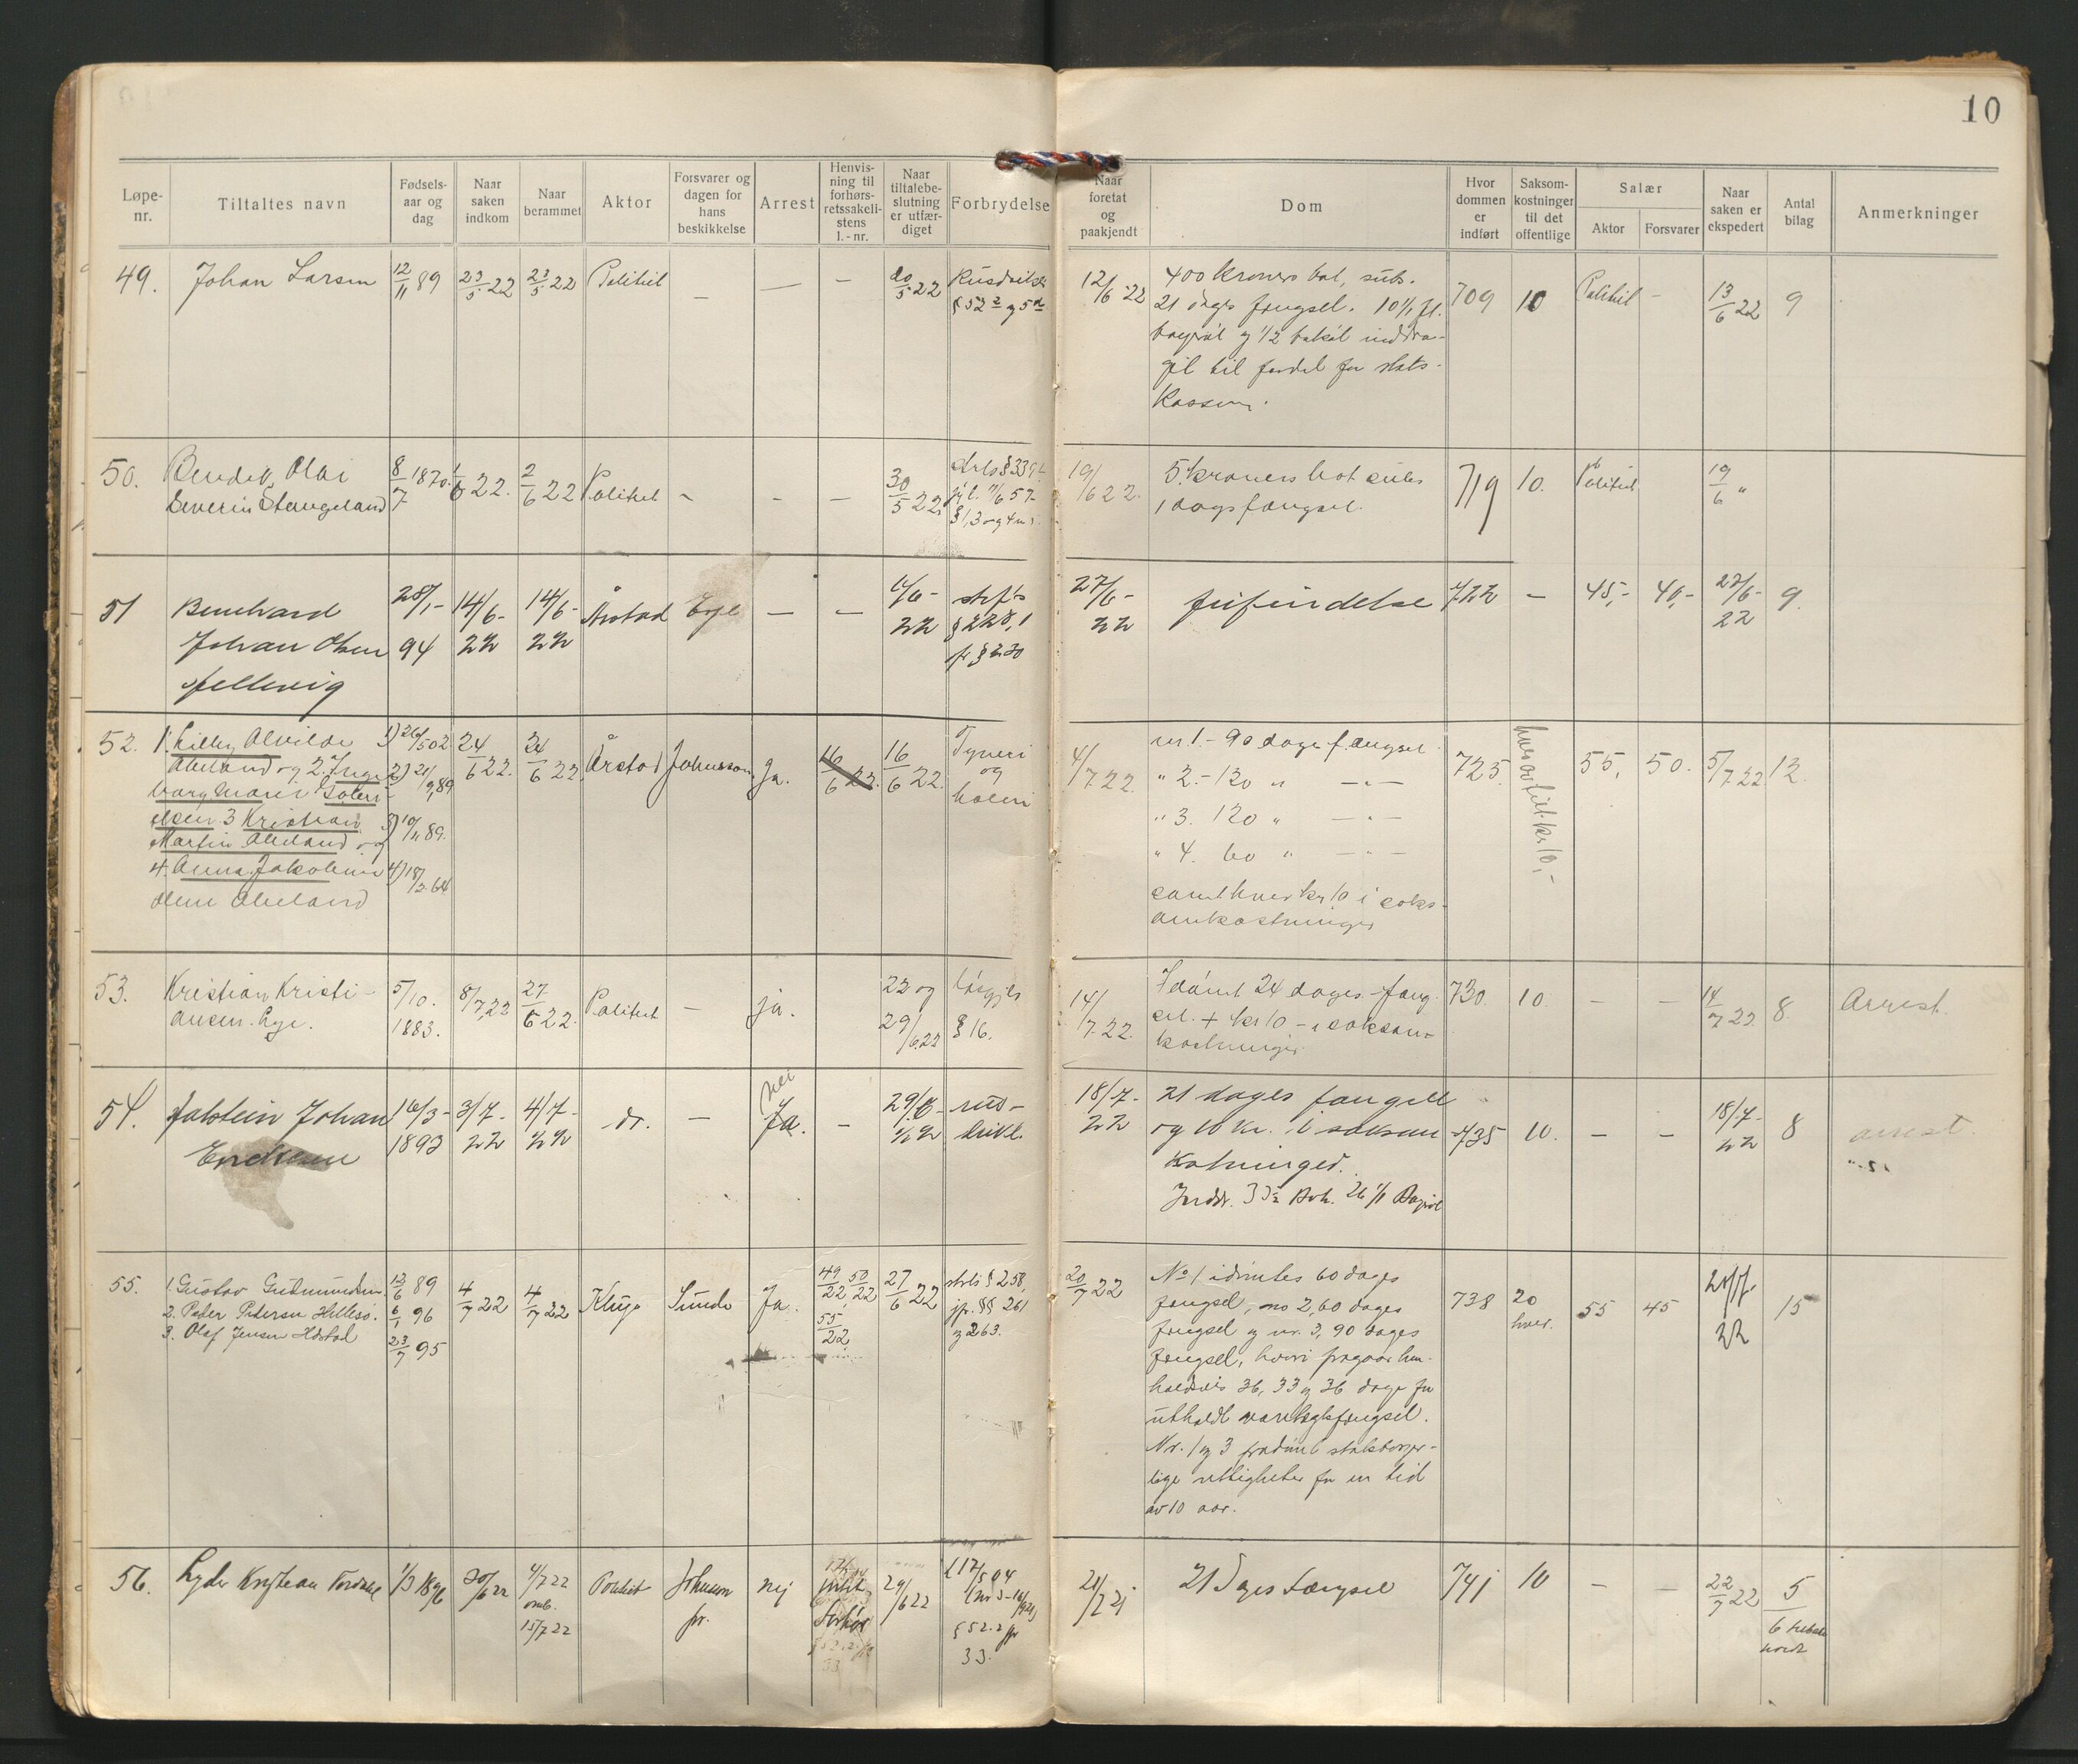 10
Løpe-
nr.
Tiltaltes navn
Fødsels-
aar og
dag
Naar
saken
indkom
Naar
berammet
Aktor
Forsvarer og
dagen for
hans
beskikkelse
Arrest
Henvis-
ning til
forhørs-
retssakeli-
stens
l.-nr.
Naar
tiltalebe-
slutning
er utfær-
diget
Forbrydelse
Naar
foretat
og
paakjendt
Dom
Hvor
dommen
er
indført
Saksom-
kostninger
til det
offentlige
Salær
Aktor
Forsvarer
Naar
saken er
ekspedert
Antal
bilag
Anmerkninger
49.
Johan Larsen
12/11 89
23/5 22
23/5 22
Politiet
–
—
–
20/5 22
§ 52
12/6 22
400 kroners bot, subs.
21 dages fængsel. 10 1/1 fl.
bayerøl og 1/2 inddra-
get til fordel for stats-
kassen.
709
10
Politiet
–
13/6 22
9
50.
Olai
Severin Stangeland
8/7 1870
1/6 22.
2/6 22
Politiet
–
–
–
30/5 22
19/6 22.
5 kroners bot subs
1 dags fængsel.
719
10.
Politiet
19/6 "
51
Bernhard
Johan Olsen
28/1-
94
14/6-
22
14/6-
22
Årstad
–
–
22
strfl's
§ 228, 1
jfr § 230
27/6-
22
frifindelse
722
–
45,-
40,-
27/6-
22
9.
52.
1. Lilly Alvilde
Abeland og 2. Inge
borg Marie
Olsen 3 Kristian
Martin Abeland og
4. Anna Jakobine
Olene Abeland
1) 26/5 02
2) 21/9 89
3) 10/11 89.
4) 18/2 64
24/6 22.
24/6 22
Årstad
Johnsson
Ja.
16/6 22.
16/6 22.
Tyveri
og
heleri
4/7 22.
nr. 1 - 90 dage fængsel.
" 2. - 120 " — " —
" 3. 120 " — " —
" 4. 60 " — " —
samt hver kr 10 i saks-
omkostninger
725.
hver av tilt. kr 10,-
55,
50.
5/7 22.
12.
53.
Kristian Kristi-
ansen Lye.
5/10.
1883.
8/7 22
27/6 22.
Politiet
–
ja.
22 og
29/6 22
løsgjl.
§ 16.
14/7. 22.
Idømt 24 dages fæng-
sel. + kr 10 - i saksom-
kostninger
730.
10.
–
–
14/7 22.
8.
Arrest.
54.
Johan
Eriksen
16/3-
1893
3/7-
22
4/7-
22
do.
–
nei
Ja.
–
29/6-
22
rus-
drikl.
18/7-
22
21 dages fængsel
og 10 kr. i saksom
kostninger.
735
10.
–
–
18/7-
22
8
arrest
55.
1. Gustav Gudmundsen
2. Peder Pedersen Hillesø.
3. Olaf Jensen
12/6 89
6/1 96
23/7 95
4/7 22
4/7 22
Kluge
Sunde
Ja.
49/22, 50/22
55/22
27/6 22
strls § 258,
jfr. §§ 261
og 263.
20/7 22
No 1 idømtes 60 dages
fængsel, no 2, 60 dages
fængsel og nr. 3, 90 dages
fængsel, hvori fragaar hen-
holdsvis 36, 33 og 36 dage for
utholdt varetægtsfængsel.
Nr. 1 og 3 fradømt statsborger-
lige rettigheter for en tid
av 10 aar.
738
20
hver.
55
45
22
15
56.
1/3 1896
30/6 22
4/7 22
omb.
15/7 22
Politiet
Johnsen
fr.
nej
29/6 22
§ 52.2 jfr
33.
21 Dages Fængsel
741
10
–
–
22/7 22
5